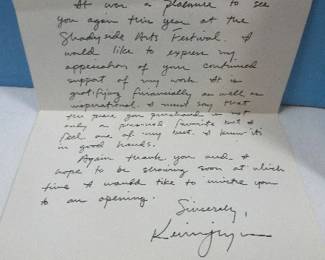 It was a pleasure to see
you again this year at the
Shadyside Arts Festival. I
would like to express my
appreciation of your continued
support of my work. It is
gratifying financially as well as
inspirational. I must say that
the piece you purchased is not
only a personal favorite but I
feel one of my best. I know it's
in good hands.
Again thank you and I
hope to be showing soon at which
time I would like to invite you
to an opening.
Sincerely,